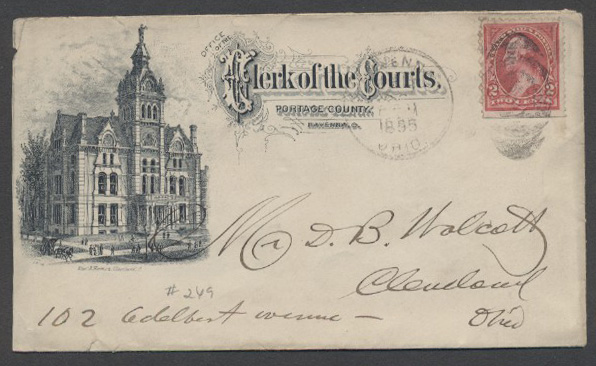 OFFICE
OF THE
Clerk of the Courts,
PORTAGE COUNTY.
RAVENNA, O.
1895
OHIO
2 2
TWO CENTS
Mr D. B. Wolcott
Cleveland
# 249
102 Adelbert avenue – Ohio